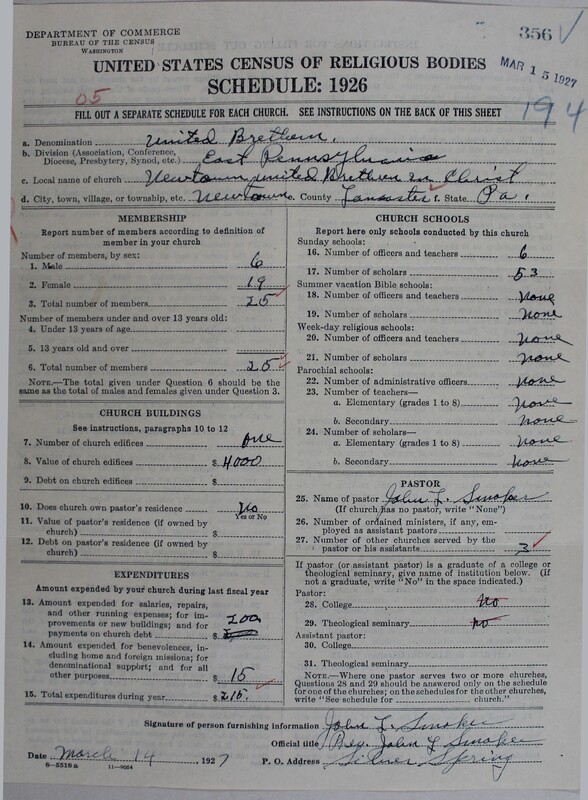 DEPARTMENT OF COMMERCE
BUREAU OF THE CENSUS
WASHINGTON
356
UNITED STATES CENSUS OF RELIGIOUS BODIES
MAR 15 1927
SCHEDULE: 1926
05
194
FILL OUT A SEPARATE SCHEDULE FOR EACH CHURCH. SEE INSTRUCTIONS ON THE BACK OF THIS SHEET
a. Denomination United Brethern.
b. Division (Association, Conference, Diocese, Presbytery, Synod, etc.) East Pennsylvania
c. Local name of church Newtown United Brethren in Christ
d. City, town, village, or township, etc. Newtown e. County Lancaster f. State Pa.
MEMBERSHIP
Report number of members according to definition of
member in your church
Number of members, by sex:
1. Male 6
2. Female 19
3. Total number of members 25
Number of members under and over 13 years old:
4. Under 13 years of age
5. 13 years old and over
6. Total number of members 25
NOTE.—The total given under Question 6 should be
the same as the total of males and females given under Question 3.
CHURCH BUILDINGS
See instructions, paragraphs 10 to 12
7. Number of church edifices one
8. Value of church edifices $ 4000
9. Debt on church edifices $
10. Does church own pastor's residence No
Yes or No
11. Value of pastor's residence (if owned by
church) $
12. Debt on pastor's residence (if owned by
church) $
EXPENDITURES
Amount expended by your church during last fiscal year
13. Amount expended for salaries, repairs,
and other running expenses; for im-
provements or new buildings; and for
payments on church debt $ 200
14. Amount expended for benevolences, in-
cluding home and foreign missions; for
denominational support; and for all
other purposes $ 15
15. Total expenditures during year $ 215.
CHURCH SCHOOLS
Report here only schools conducted by this church
Sunday schools:
16. Number of officers and teachers 6
17. Number of scholars 53
Summer vacation Bible schools:
18. Number of officers and teachers None
19. Number of scholars None
Week-day religious schools:
20. Number of officers and teachers None
21. Number of scholars None
Parochial schools:
22. Number of administrative officers None
23. Number of teachers—
a. Elementary (grades 1 to 8) None
b. Secondary None
24. Number of scholars—
a. Elementary (grades 1 to 8) None
b. Secondary None
PASTOR
25. Name of pastor John L. Smoker
(If church has no pastor, write "None")
26. Number of ordained ministers, if any, em-
ployed as assistant pastors
27. Number of other churches served by the
pastor or his assistants 3
If pastor (or assistant pastor) is a graduate of a college or
theological seminary, give name of institution below. (If
not a graduate, write "No" in the space indicated.)
Pastor:
28. College No
29. Theological seminary No
Assistant pastor:
30. College
31. Theological seminary
NOTE.—Where one pastor serves two or more churches,
Questions 28 and 29 should be answered only on the schedule
for one of the churches; on the schedules for the other churches,
write "See schedule for church."
Signature of person furnishing information John L. Smoker
Official title Rev. John L Smoker
Date March 14 1927
P. O. Address Silver Spring
8—5518a 11—9054